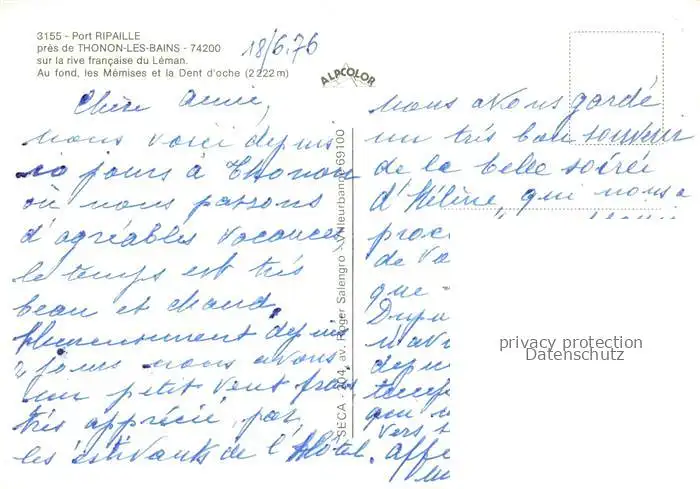 3155 - Port RIPAILLE
près de THONON-LES-BAINS - 74200
sur la rive française du Léman.
Au fond, les Mémises et la Dent d'oche (2222 m)
18/6.76
ALPCOLOR
Chère Annie,
nous voici depuis
10 jours à Thonon
où nous passons
d'agréables vacances,
le temps est très
beau et chaud,
Heureusement depuis
2 jours nous avons
un petit vent frais,
très apprécié, par
les estivants de l'Hôtel.
SECA - 204, av. Roger Salengro - Villeurbanne 69100
nous avons gardé
un très bon souvenir
de la belle soirée
d'Hélène, qui nous a
de
que
depu
qui
vers
privacy protection
Datenschutz